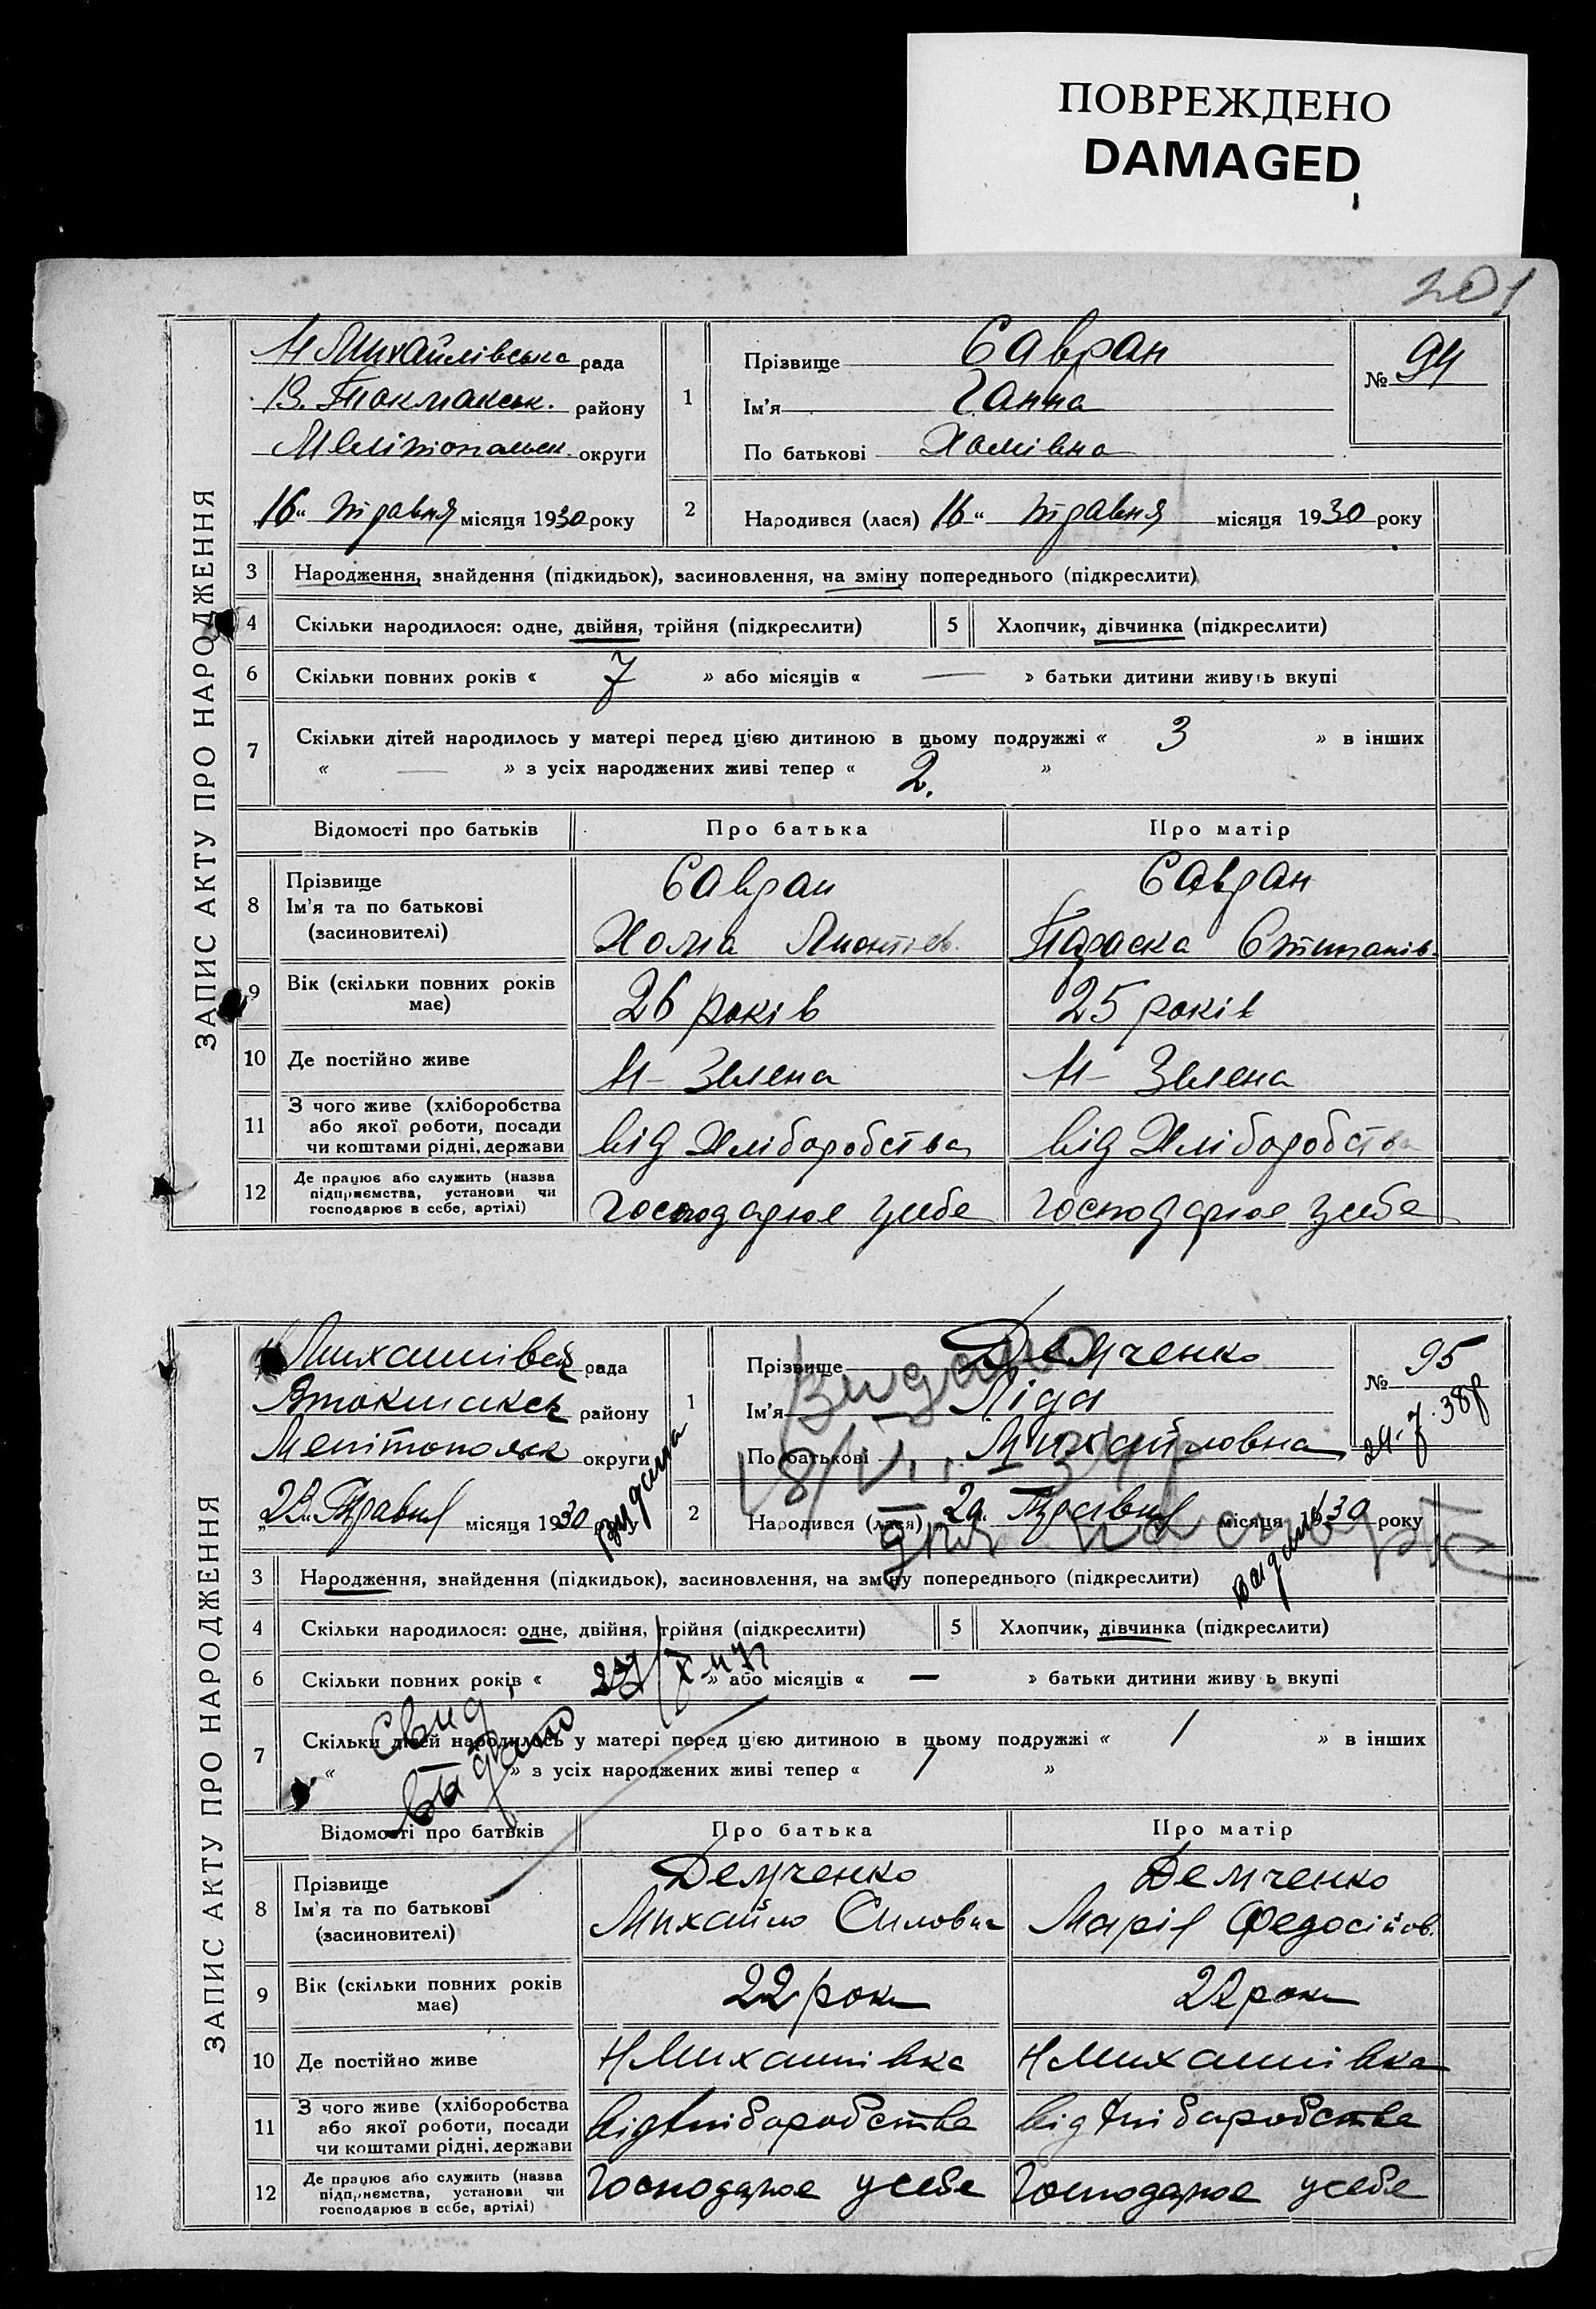 ПОВРЕЖДЕНО
DAMAGED
201
ЗАПИС АКТУ ПРО НАРОДЖЕННЯ
Н Михайлівська рада
В. Токмакськ. району
Мелітопольськ. округи
„16“ травня місяця 1930 року
1
Прізвище Савран
Ім'я Ганна
По батькові Хомівна
№ 94
2
Народився (лася) 16“ травня місяця 1930 року
3 Народження, знайдення (підкидьок), засиновлення, на зміну попереднього (підкреслити)
4 Скільки народилося: одне, двійня, трійня (підкреслити)
5 Хлопчик, дівчинка (підкреслити)
6 Скільки повних років « 7 » або місяців « — » батьки дитини живуть вкупі
7 Скільки дітей народилось у матері перед цією дитиною в цьому подружжі « 3 » в інших
« — » з усіх народжених живі тепер « 2. »
Відомості про батьків Про батька Про матір
8 Прізвище
Ім'я та по батькові
(засиновителі)
Савран
Хома
Савран
Параска Степанів.
9 Вік (скільки повних років
має)
26 років
25 років
10 Де постійно живе
Н - Зелена
Н - Зелена
11 З чого живе (хліборобства
або якої роботи, посади
чи коштами рідні, держави
від Хліборобства
від Хліборобства
12 Де працює або служить (назва
підприємства, установи чи
господарює в себе, артілі)
Господарює усебе
Господарює усебе
ЗАПИС АКТУ ПРО НАРОДЖЕННЯ
Михайлівськ рада
Втокмакськ району
Мелітопольськ округи
„29“ Травня місяця 1930 року
видана
1
Прізвище Демченко
Ім'я Ліда
По батькові Михайловна
№ 95
29. 7. 38р
Видано
2
Народився (лася) 29. Травня місяця 1930 року
видана
3 Народження, знайдення (підкидьок), засиновлення, на зміну попереднього (підкреслити)
4 Скільки народилося: одне, двійня, трійня (підкреслити)
5 Хлопчик, дівчинка (підкреслити)
6 Скільки повних років « 2 » або місяців « — » батьки дитини живуть вкупі
7 Скільки дітей народилось у матері перед цією дитиною в цьому подружжі « 1 » в інших
« » з усіх народжених живі тепер « 1 »
Свид.
выдано
Відомості про батьків Про батька Про матір
8 Прізвище
Ім'я та по батькові
(засиновителі)
Демченко
Михайло Силович
Демченко
Марія Федосійов.
9 Вік (скільки повних років
має)
22 роки
22 роки
10 Де постійно живе
НМихайлівка
НМихайлівка
11 З чого живе (хліборобства
або якої роботи, посади
чи коштами рідні, держави
від Хліборобства
від Хліборобства
12 Де працює або служить (назва
підприємства, установи чи
господарює в себе, артілі)
Господарює усебе
Господарює усебе